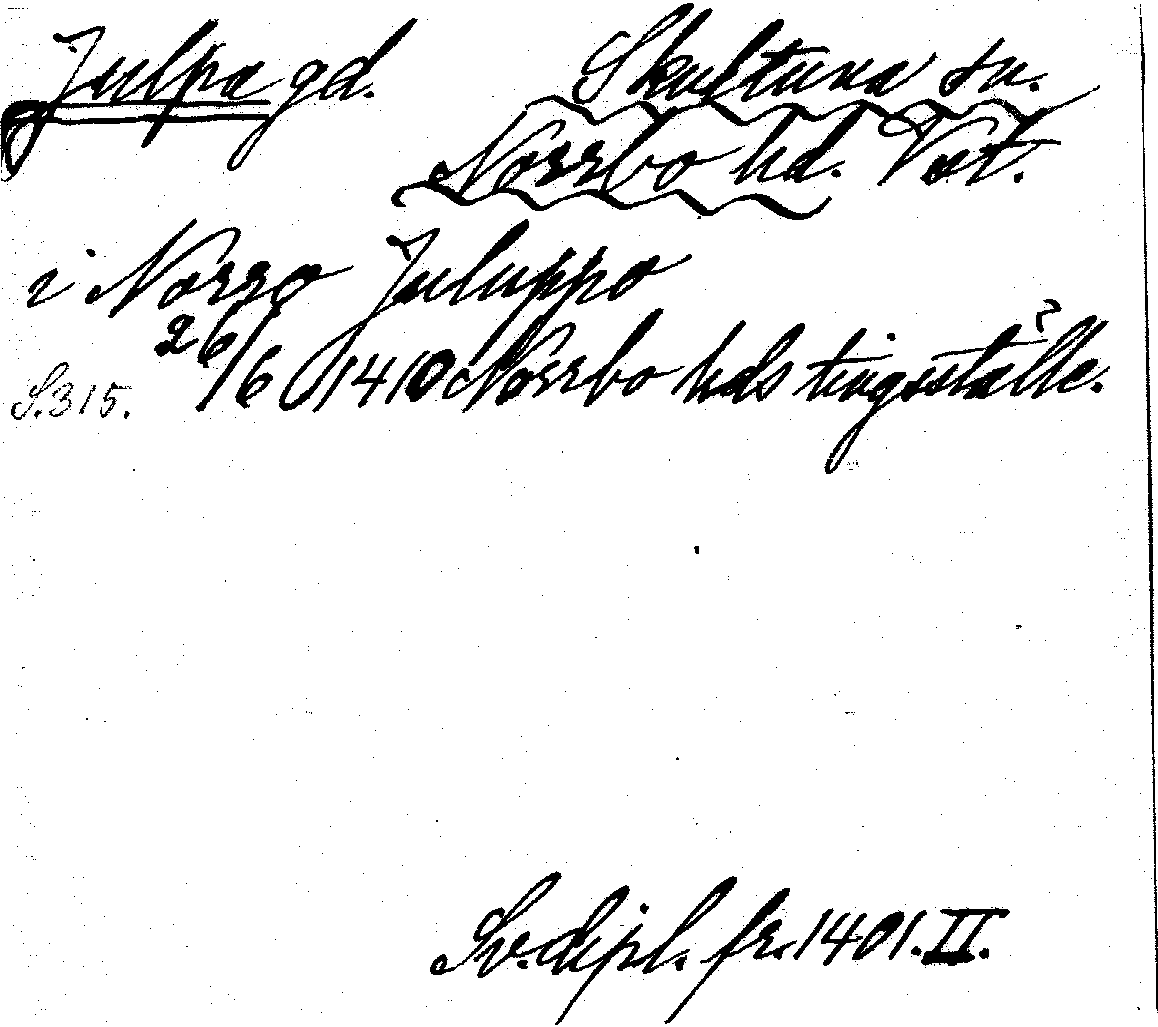 Julpa gd. Skultuna sn.
Norrbo hd. Vstm.
i Norro Juluppo
26/6 1410 Norrbo hds tingsställe.
S.315.
Sv. dipl. fr. 1401. II.